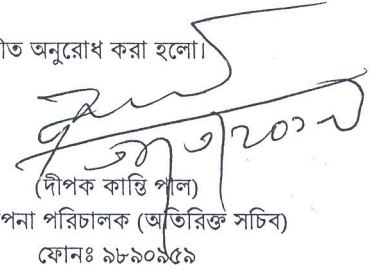 ীত অনুরোধ করা হলো।
(দীপক কান্তি পাল)
পনা পরিচালক (অতিরিক্ত সচিব)
ফোনঃ ৯৮৯০৯৫৯